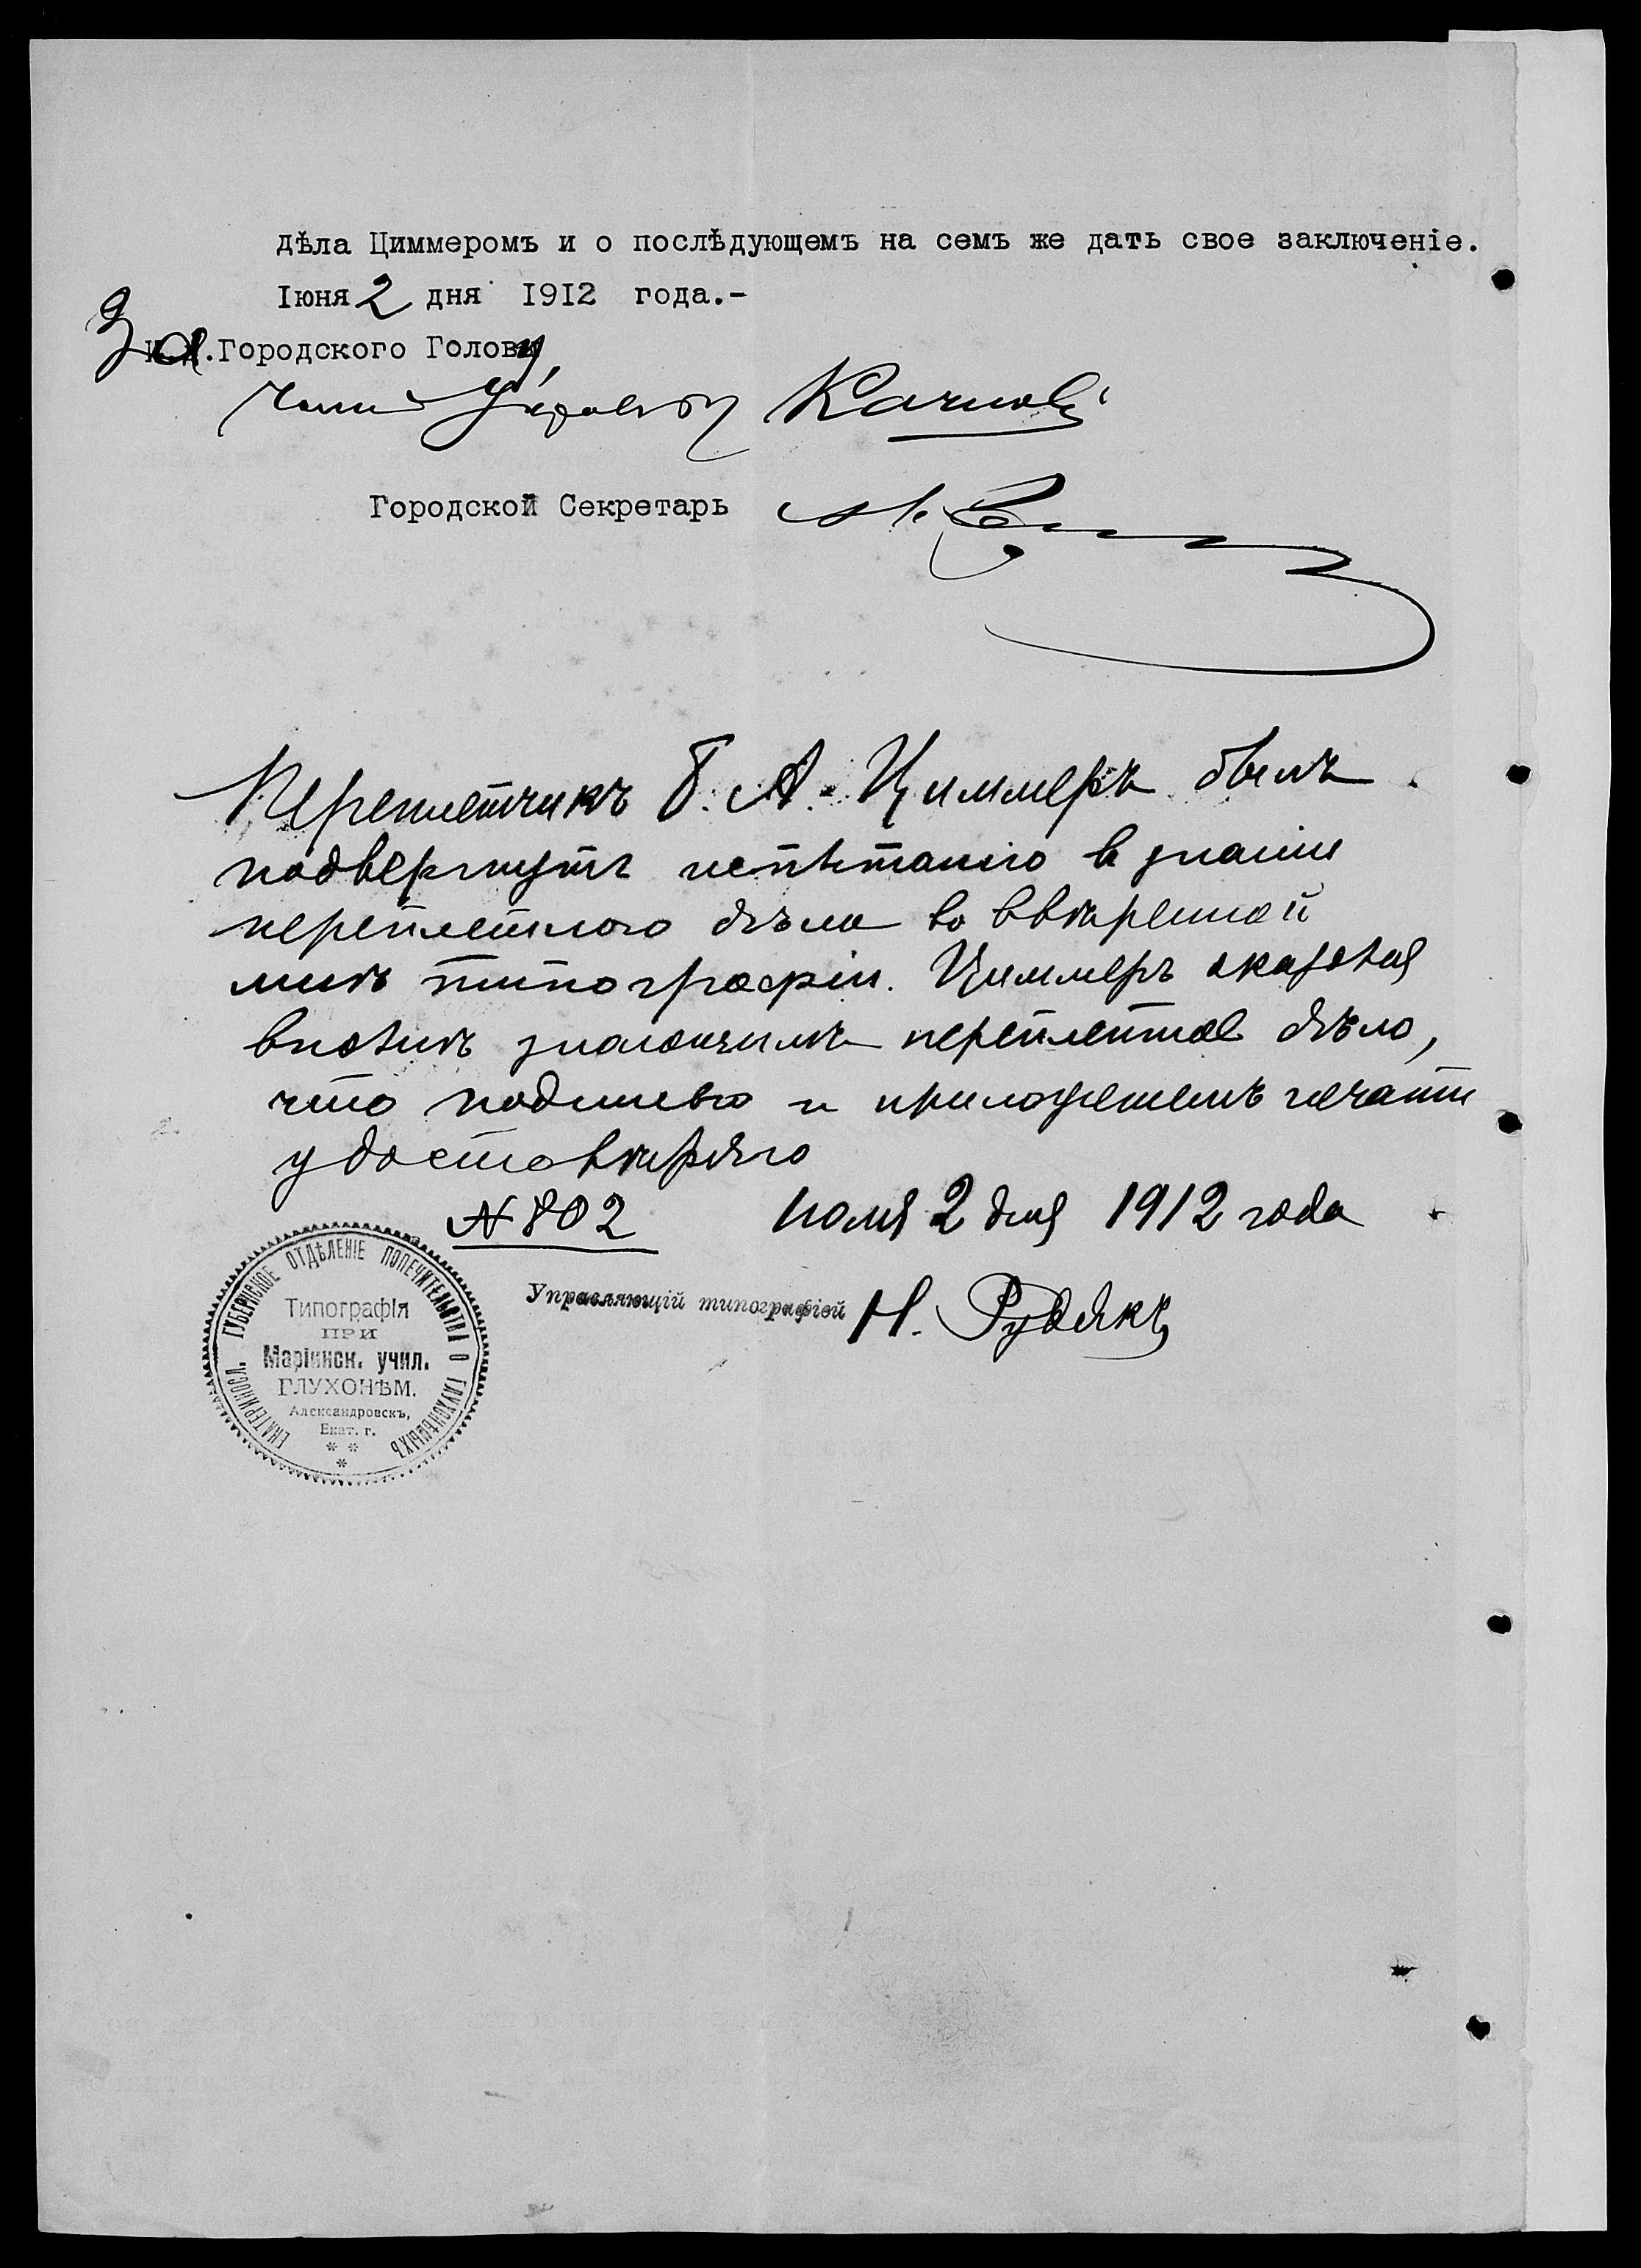 дѣла Циммеромъ и о послѣдующемъ на семъ же дать свое заключеніе.
Іюня 2 дня 1912 года.-
За Городского Голову,
Членъ Управы
Городской Секретарь
Переплетчикъ Б. А. Циммеръ былъ
подвергнутъ испытанію в знаніи
переплетного дѣла во ввѣренной
мнѣ типографіи. Циммеръ оказался
вполнѣ знающимъ переплетное дѣло,
что подписью и приложеніемъ печати
удостовѣряю
№ 802 Іюня 2 дня 1912 года
Управляющій типографіей Н. Рудякъ
ЕКАТЕРИНОСЛ. ГУБЕРНСКОЕ ОТДѢЛЕНІЕ ПОПЕЧИТЕЛЬСТВА О ГЛУХОНѢМЫХЪ
Типографія
ПРИ
Маріинск. учил.
ГЛУХОНѢМ.
Александровскъ,
Екат. г.